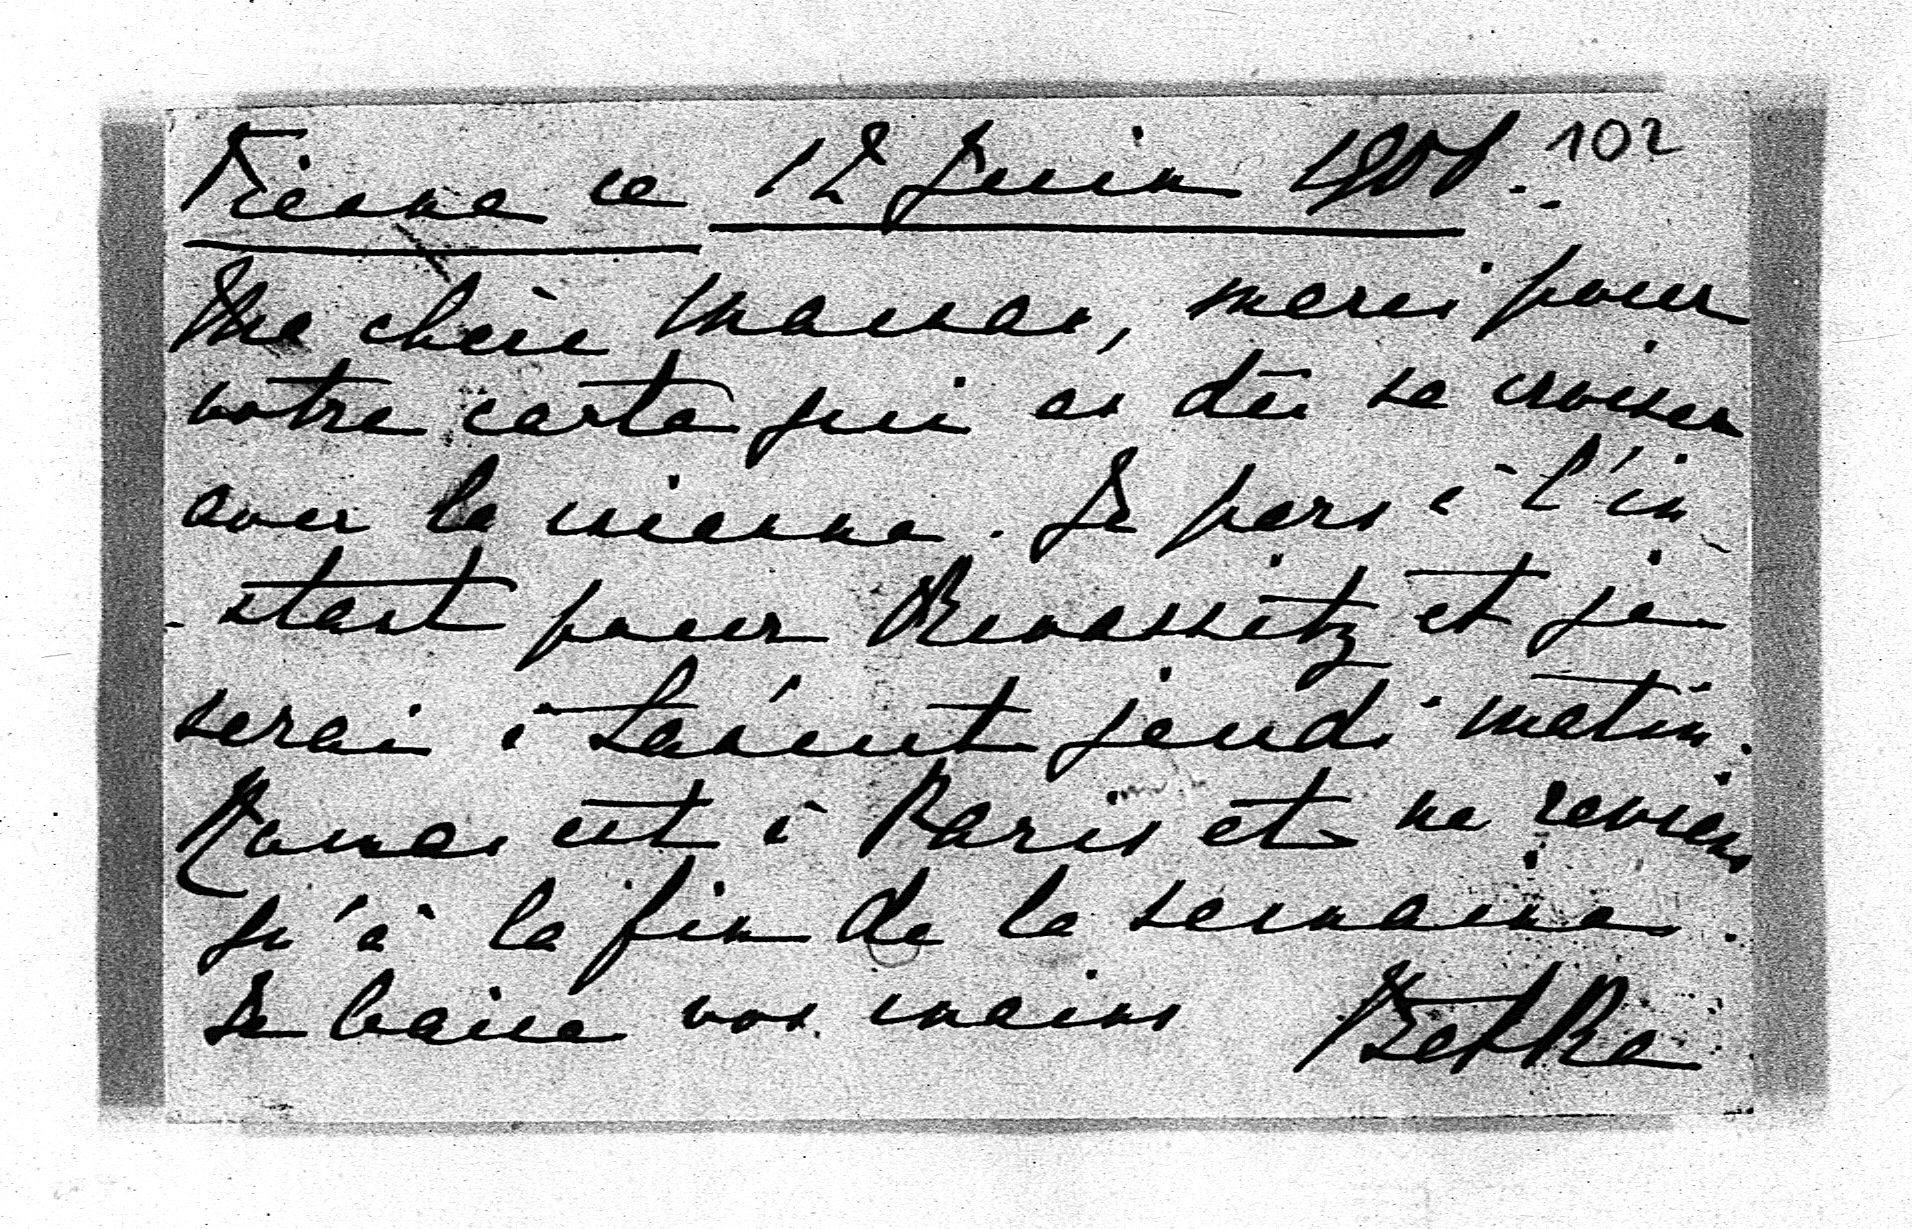 Vienne ce 12 Juin 1901. 102
Ma chère Maman, merci pour
votre carte qui a dû se croiser
avec la mienne. Je pars à l'in
-stant pour et je
serai à Lancut jeudi matin.
Roman est à Paris et ne reviens
qu'à la fin de la semaine.
Je baise vos mains